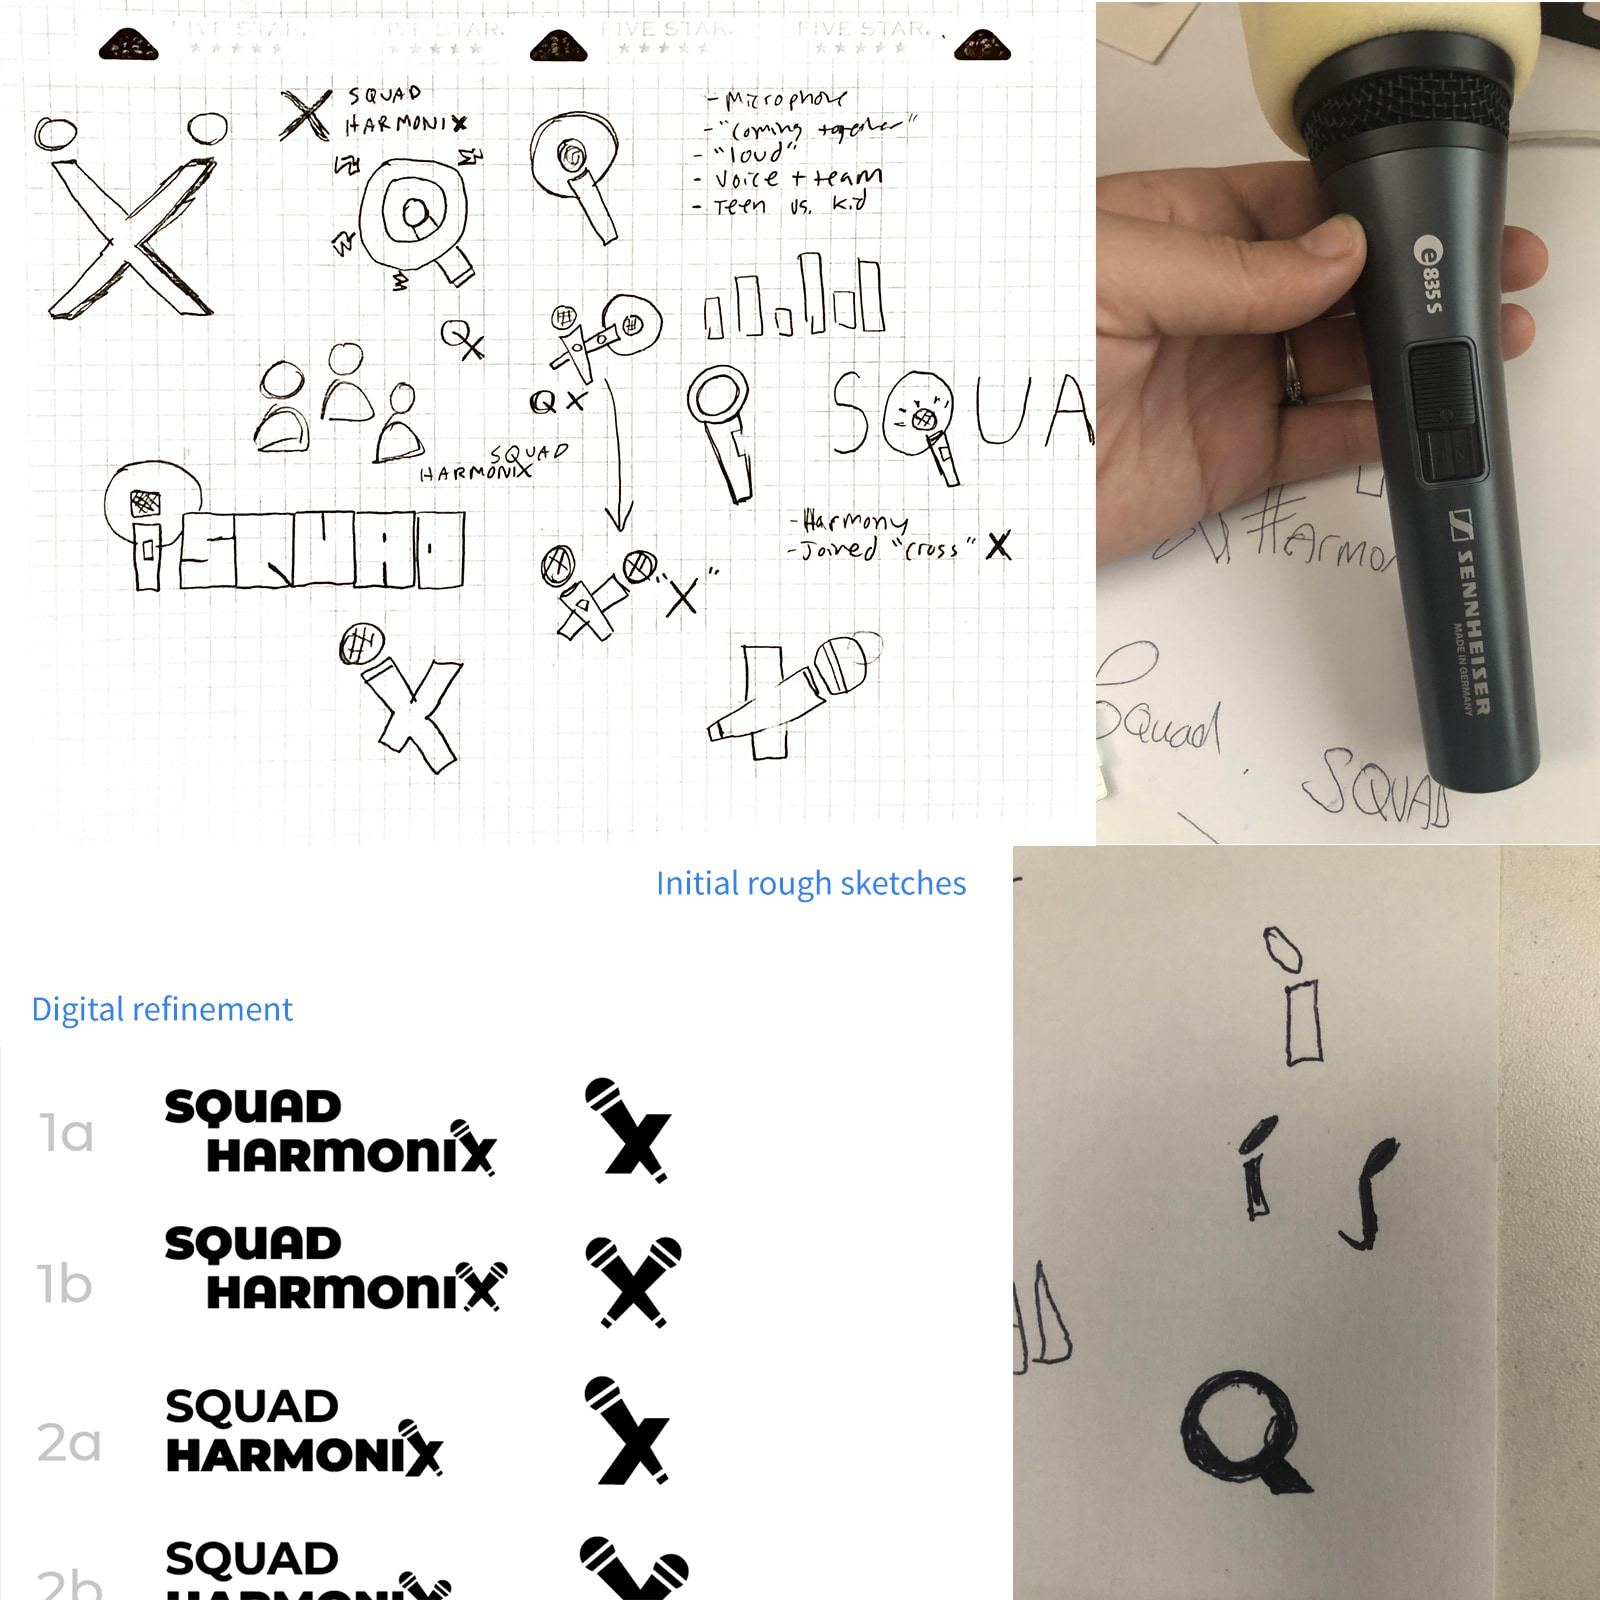 FIVE STAR. FIVE STAR. FIVE STAR. FIVE STAR.
SQUAD
HARMONIX
- Microphone
- "coming together"
- "loud"
- Voice + team
- Teen vs. kid
QX
QX
SQUAD
HARMONIX
SQUA
SQUAD
- Harmony
- Joined "cross" X
"X"
e835 S
SENNHEISER
MADE IN GERMANY
Squad
SQUAD
Initial rough sketches
Digital refinement
1a
SQUAD
HARMONIX
X
1b
SQUAD
HARMONIX
X
2a
SQUAD
HARMONIX
X
2b
SQUAD
HARMONIX
i
i
Q